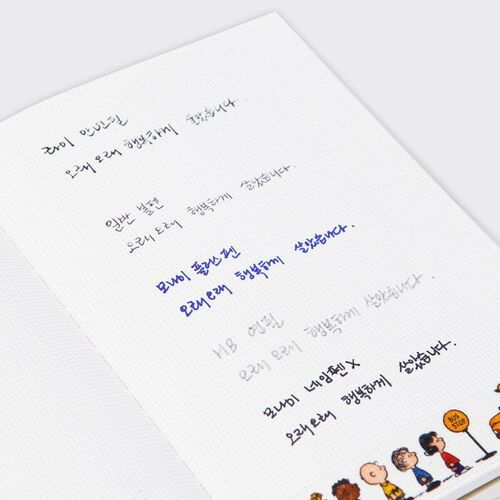 라미 만년필
오래 오래 행복하게 살았습니다.
일반 볼펜
오래오래 행복하게 살았습니다.
모나미 플러스펜
오래오래 행복하게 살았습니다.
HB 연필
오래 오래 행복하게 살았습니다.
모나미 네임펜 X
오래오래 행복하게 살았습니다.
BUS
STOP